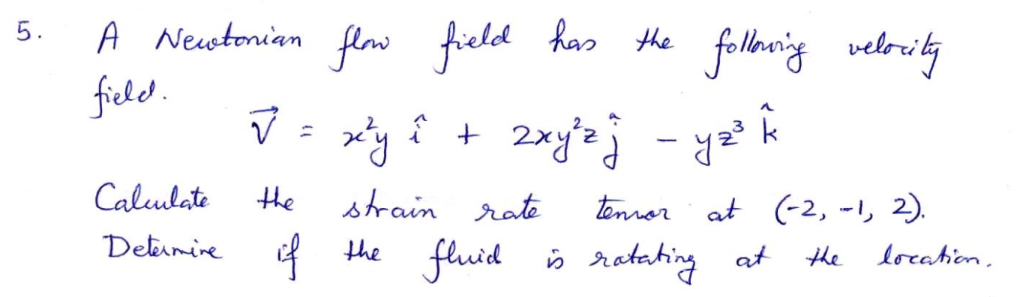 5. A Newtonian flow field has the following velocity
field.
V⃗ = x²y î + 2xy²z ĵ − yz³ k̂
Calculate the strain rate tensor at (-2, -1, 2).
Determine if the fluid is rotating at the location.